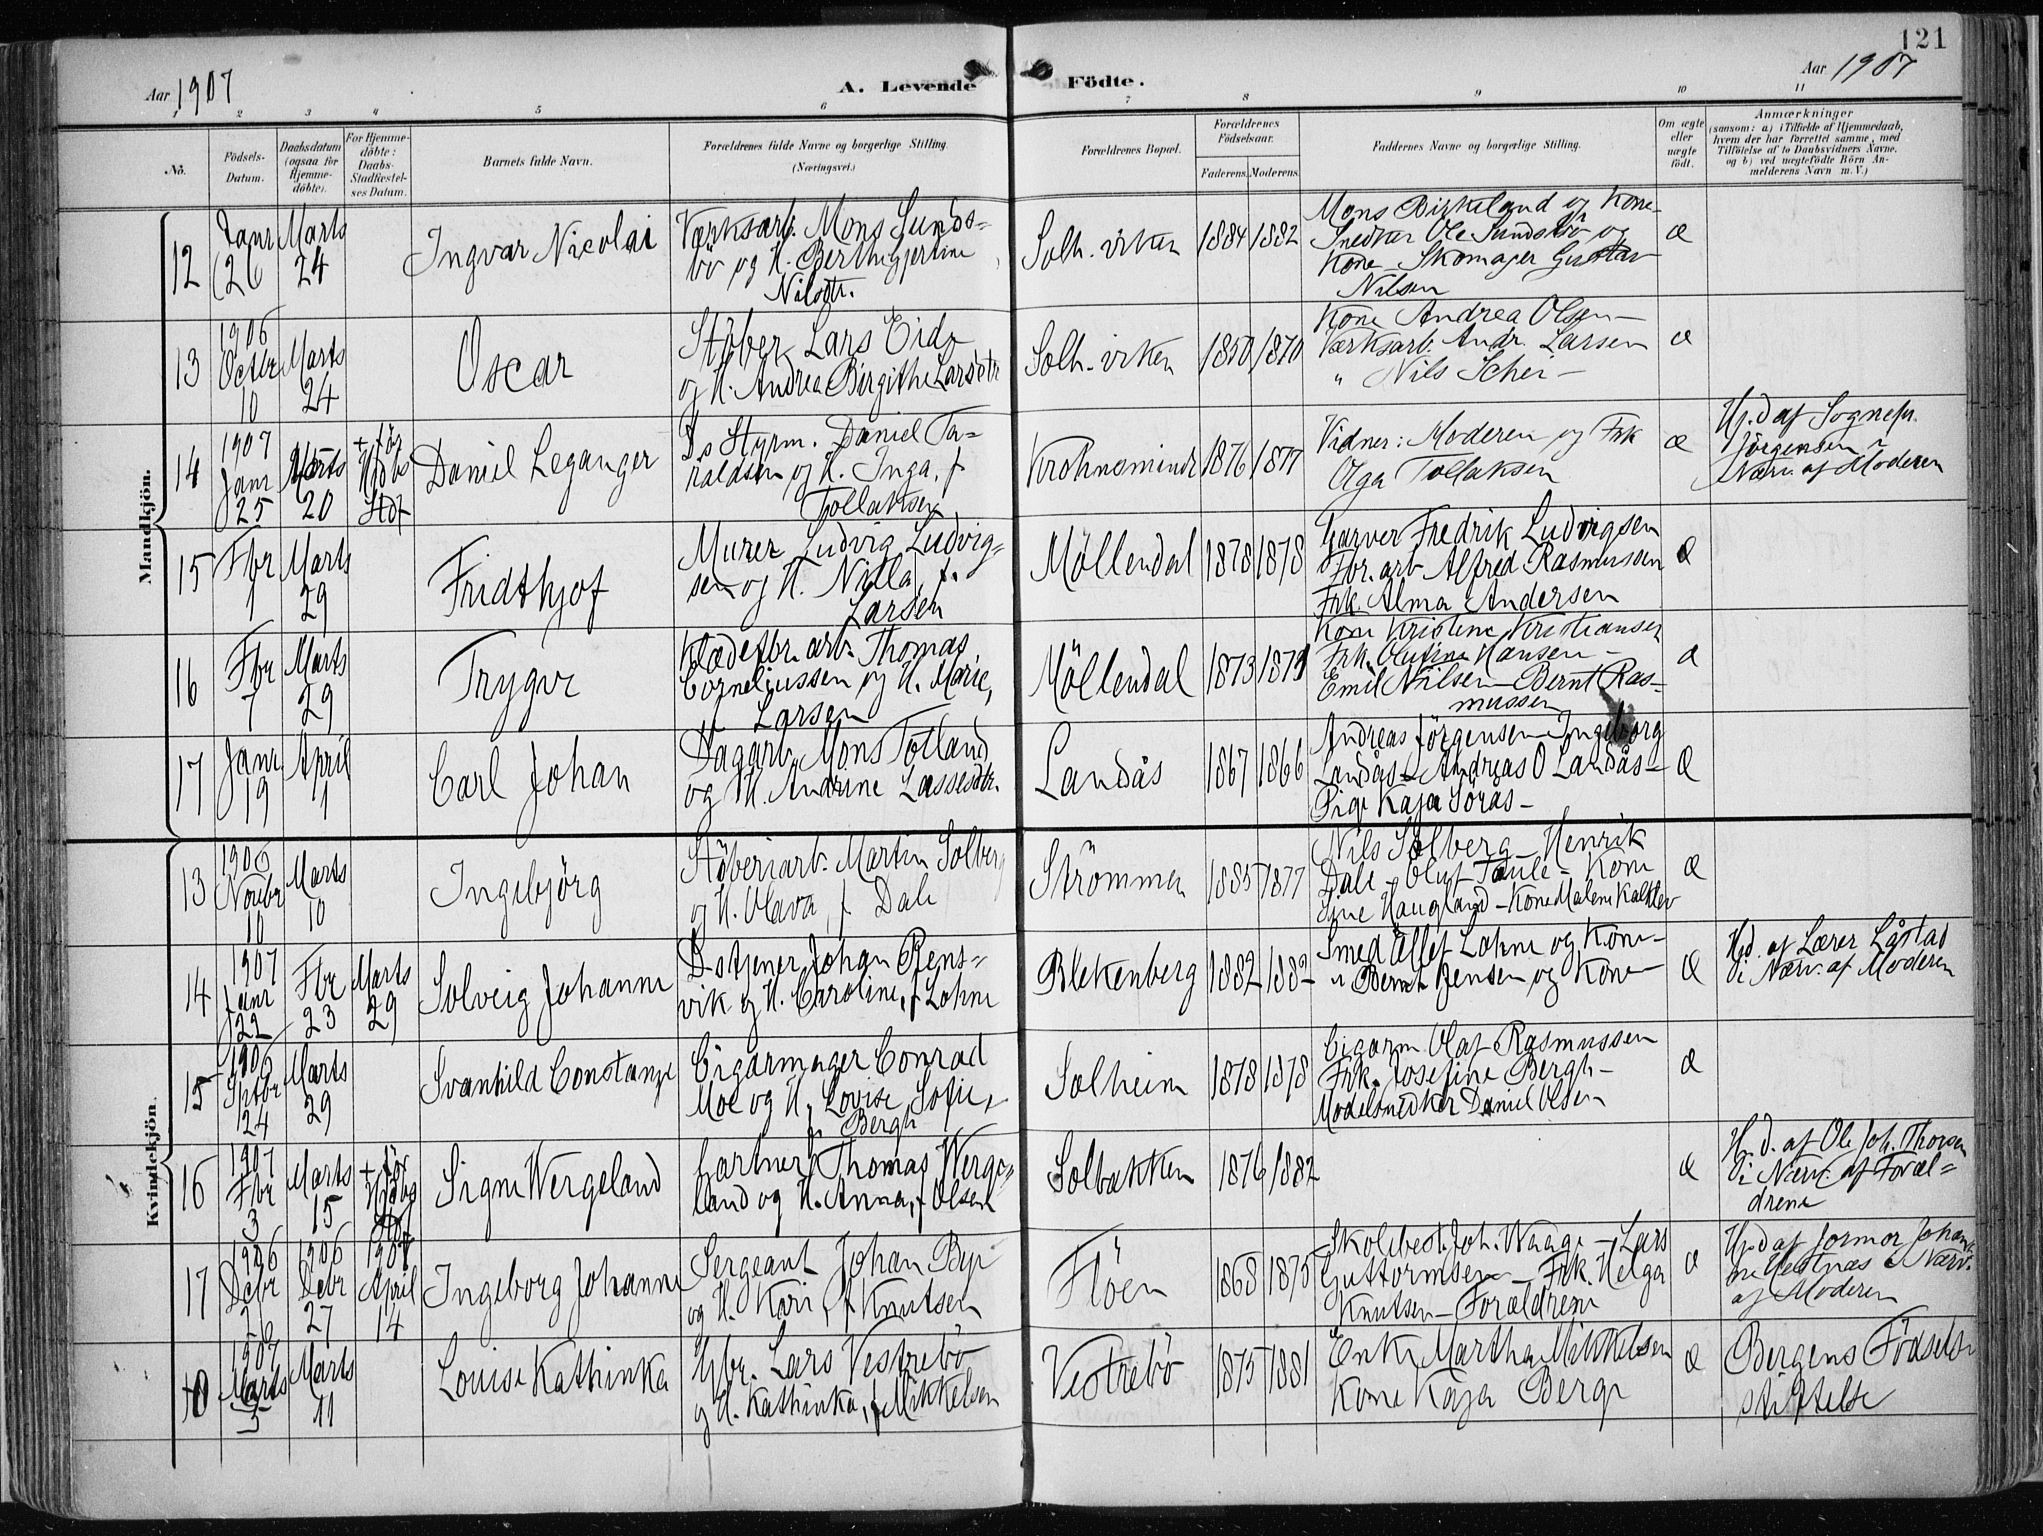 121
Aar 1907
A. Levende Födte.
Aar 1907
1 2 3 4 5 6 7 8 9 10 11
No.
Födsels-Datum.
Daabsdatum (ogsaa for Hjemme-döbte).
For Hjemme-döbte: Daabs-Stadfæstel-ses Datum.
Barnets fulde Navn.
Forældrenes fulde Navne og borgerlige Stilling.
(Næringsvei.)
Forældrenes Bopæl.
Forældrenes Födselsaar.
Faderens. Moderens.
Faddernes Navne og borgerlige Stilling.
Om ægte eller uægte födt.
Anmærkninger
(saasom: a) i Tilfælde af Hjemmedaab,
hvem der har forrettet samme, med
Tilföielse af to Daabsvidners Navne,
og b) ved uægtefödte Börn An-
melderens Navn m. V.)
Mandkjön.
12
Janr 26
Marts 24
Ingvar Nicolai
Værksarb. Mons Sunds-
bö og H. Berthe Gjertine
Nilsdtr.
Solh. virken
1884 1882
Mons Birkeland og Kone-
Snedker Ole Sundsbö og
Kone - Skomager Gustav
Nilsen
Æ
13
1906 Octbr 10
Marts 24
Oscar
Stöber Lars Eide
og H. Andrea Birgithe Larsdtr
Solh. virken
1850 1870
Kone Andrea Olsen -
Værksarb. Andr. Larsen
" Nils Schei -
Æ
14
1907 Janr 25
Marts 20
+ för Hjdbs Stdf
Daniel Leganger
Ds Styrm. Daniel Ta-
raldsen og H. Inga, f
Tollaksen
Krohnsminde
1876 1877
Vidner: Moderen og Frk
Olga Tollaksen
Æ
Hj.d af Sognepr.
Jörgensen i
Nærv. af Moderen
15
Fbr 1
Marts 29
Fridthjof
Murer Ludvig Ludvig-
sen og H. Nilla, f.
Larsen
Möllendal
1878 1878
Garver Fredrik Ludvigsen
Fbr. arb Alfred Rasmussen
Frk. Alma Andersen
Æ
16
Fbr 7
Marts 29
Trygve
Klædefbr. arb. Thomas
Corneliussen og H. Marie,
f Larsen
Möllendal
1873 1873
Kone Kristine Kristiansen
Frk. Olufine Hansen -
Emil Nilsen - Bernt Ras-
mussen
Æ
17
Janr 19
April 1
Carl Johan
Dagarb. Mons Totland
og H. Andrine Lassesdtr.
Landås
1867 1866
Andreas Jörgensen - Ingeborg
Landås - Andreas O Landås -
Pige Kaja Sörås -
Æ
Kvindekjön.
13
1906 Novbr 10
Marts 10
Ingebjörg
Stöberiarb. Martin Solberg
og H. Olava, f Dale
Strömmen
1885 1877
Nils Solberg - Henrik
Dale - Oluf Taule - Kone
Sine Haugland - Kone Malene Kalkler
Æ
14
1907 Janr 22
Fbr 23
Marts 29
Solveig Johanne
D.stjener Johan Rens-
vik og H. Caroline, f Lohne
Blekenberg
1882 1882
Smed Ellef Lohne og Kone -
" Bernt Jensen og Kone -
Æ
H.d. af Lærer Låstad
i Nærv. af Moderen
15
1906 Sptbr 24
Marts 29
Svanhild Constanse
Cigarmager Conrad
Moe og H. Lovise Sofie,
f Bergh
Solheim
1878 1878
Cigarm. Olaf Rasmussen
Frk. Josefine Bergh -
Modelsnedker Daniel Olsen
Æ
16
1907 Fbr 3
Marts 15
+ för Hjdbs Stdf
Signe Wergeland
Gartner Thomas Werge-
land og H. Anna, f Olsen
Solbakken
1876 1882
Æ
H.d. af Ole Joh. Thorsen
i Nærv. af Foræl-
drene
17
1906 Debr
1906 Debr 27
1907 April 14
Ingeborg Johanne
Sergeant Johan Bye
og H. Kari, f Knutsen
Flöen
1868 1875
Skolebest. Joh. Waage - Lars
Guttormsen - Frk. Helga
Knutsen - Forældrene
Æ
Hj.d af Jormor Johan-
ne Hestnæs i Nærv.
af Moderen
1907 Marts 5
Marts 11
Louise Kathinka
Gbr. Lars Vestrebö
og H. Kathinka, f Mikkelsen
Vestrebö
1875 1881
Enke Martha Mikkelsen
Kone Kaja Berge
Æ
Bergens Födsels-
stiftelse